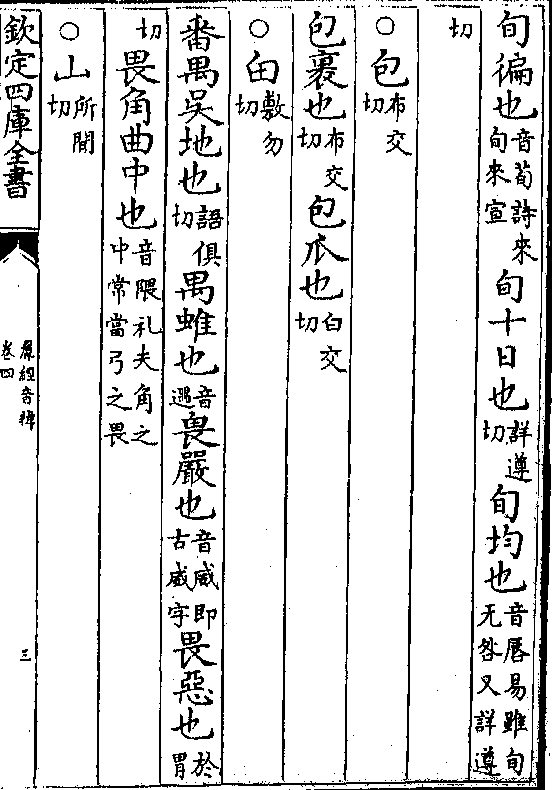 旬徧也音荀詩來旬來宣旬十日也詳遵切旬均也音唇易雖旬无咎又詳遵
切
○包布交切
包裹也布交切包爪也白交切
○甶敷勿切
番禺吳地也語俱切禺蜼也音遇畏嚴也音威即古威字畏惡也於胃
切畏角曲中也音隈礼夫角之中常當弓之畏
○山所閒切
欽定四庫全書
羣經音辨
卷四
三